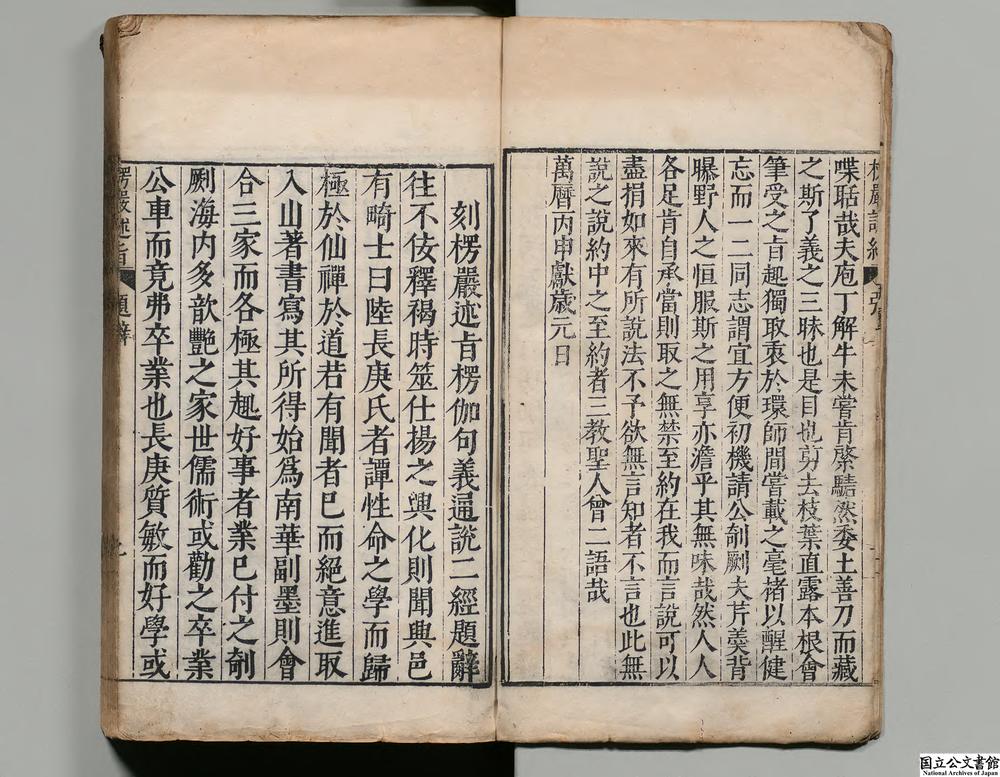 喋聒哉夫庖丁解牛未嘗肯綮騞然委土善刀而藏
之斯了義之三昧也是目也剪去枝葉直露本根會
筆受之旨趣獨取衷於環師間嘗載之毫褚以醒健
忘而一二同志謂宜方便初機請公剞劂夫芹羙背
曝野人之恒服斯之用享亦澹乎其無味哉然人人
各足肯自承當則取之無禁至約在我而言說可以
盡捐如來有所說法不予欲無言知者不言也此無
說之說約中之至約者三教聖人曾二語哉
萬曆丙申獻歲元日
刻楞嚴述旨楞伽句義通說二經題辭
往不佞釋褐時筮仕揚之興化則聞興邑
有畸士曰陸長庚氏者譚性命之學而歸
極於仙禪於道若有聞者已而絕意進取
入山著書寫其所得始為南華副墨則會
合三家而各極其趣好事者業已付之剞
劂海內多歆艷之家世儒術或勸之卒業
公車而竟弗卒業也長庚質敏而好學或
楞嚴述旨
題辭
国立公文書館
National Archives of Japan